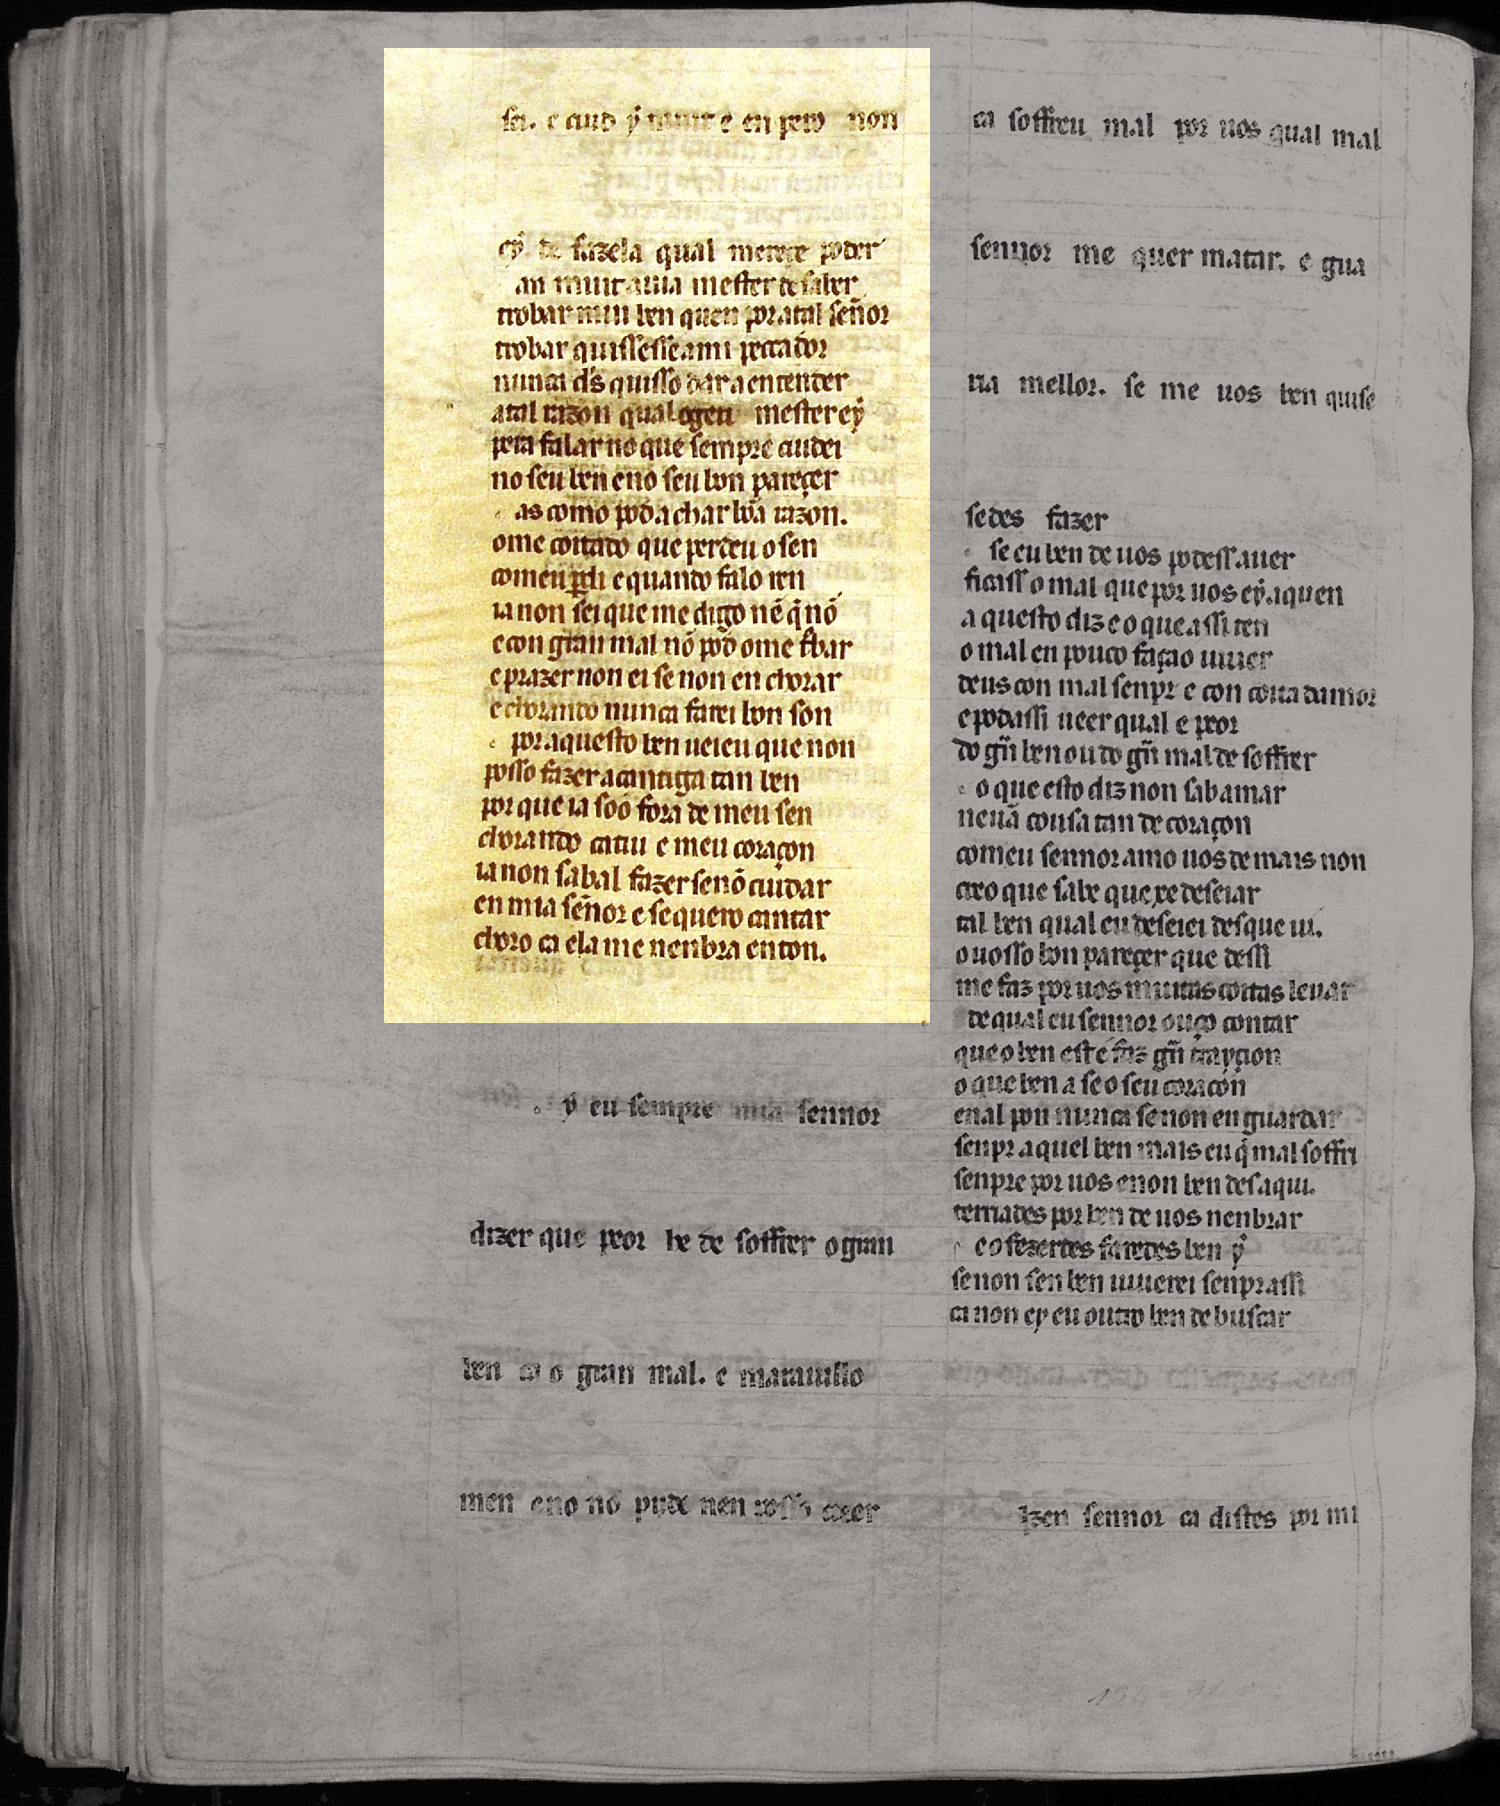 sei. e cuid ẏ muit e en pero non
eẏ de fazela qual mereçe poder
an muit auia mester de saber
trobar mui ben quen por atal señor
trobar quisesse ami peccador
nunca d̄s quisso dar a entender
atal razon qual ogeu mester eẏ
pera falar no que sempre cuidei
no seu ben eno seu bon pareçer
as como pod achar bõa razon.
ome coitado que perdeu o sen
comeu perdi e quando falo ren
ia non sei que me digo nẽ q̄ nõ
e con gran mal nõ pod ome trobar
e prazer non ei se non en chorar
e chorando nunca farei bon son
por aquesto ben ueieu que non
posso fazer a cantiga tan ben
por que ia soo fora de meu sen
chorando catiu e meu coraçon
ia non sabal fazer senõ cuidar
en mia señor e se quero cantar
choro ca ela me nenbra enton.
ẏ eu sempre mia sennor
dizer que peor he de soffrer o gran
ben ca o gran mal. e marauillo
men eno nõ pude nen posso creer
ca soffreu mal por uos qual mal
sennor me quer matar. e gua
ria mellor. se me uos ben quise
sedes fazer
se eu ben de uos podess auer
ficass o mal que por uos eẏ. aquen
a questo diz e o que assi ten
o mal en pouco façao uiuer
deus con mal senpr e con coita damor
e podassi ueer qual e peor
do gñ ben ou do gñ mal de soffrer
o que esto diz non sabamar
neuã cousa tan de coraçon
comeu sennor amo uos de mais non
creo que sabe que xe deseiar
tal ben qual eu deseiei desque ui.
o uosso bon pareçer que dessi
me faz por uos muitas coitas leuar
de qual eu sennor ouço contar
que o ben este faz gñ trayçion
o que ben a se o seu coraçón
enal pon nunca se non en guardar
senpr aquel ben mais eu q̄ mal soffri
senpre por uos e non ben desaqui.
terriades por ben de uos nenbrar
e o fezerdes faredes ben ẏ
senon sen ben uiuerei senprassi
ca non ey eu outro ben de buscar
izen sennor ca distes por mi